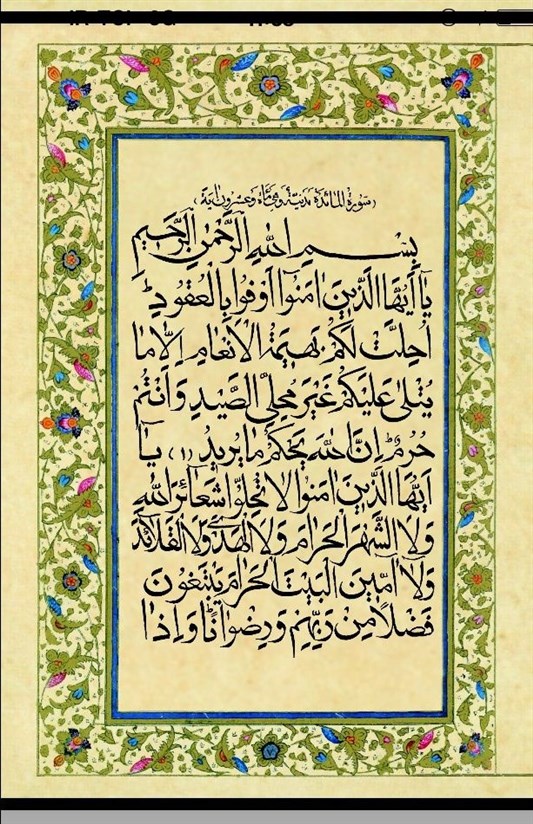 (سورة المائدة مدنية وهي مائة وعشرون اية)
بِسْمِ اللّٰهِ الرَّحْمٰنِ الرَّحِيمِ
يَا أَيُّهَا الَّذِينَ اٰمَنُوا أَوْفُوا بِالْعُقُودِ
اُحِلَّتْ لَكُمْ بَهِيمَةُ الْاَنْعَامِ اِلَّا مَا
يُتْلٰى عَلَيْكُمْ غَيْرَ مُحِلِّي الصَّيْدِ وَاَنْتُمْ
حُرُمٌ اِنَّ اللّٰهَ يَحْكُمُ مَا يُرِيدُ (١) يَا
اَيُّهَا الَّذِينَ اٰمَنُوا لَا تُحِلُّوا شَعَائِرَ اللّٰهِ
وَلَا الشَّهْرَ الْحَرَامَ وَلَا الْهَدْيَ وَلَا الْقَلَائِدَ
وَلَا اٰمِّينَ الْبَيْتَ الْحَرَامَ يَبْتَغُونَ
فَضْلًا مِنْ رَبِّهِمْ وَرِضْوَانًا وَاِذَا